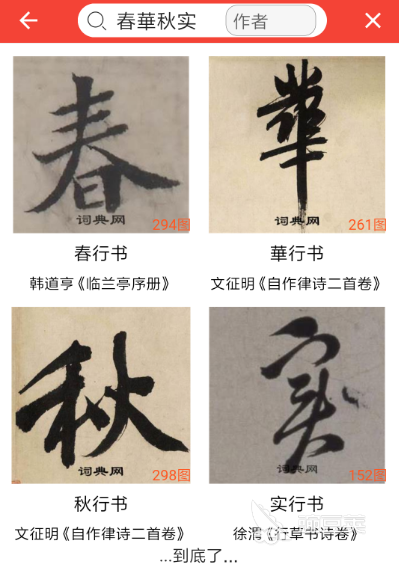 春華秋实 作者
春 華
词典网 294图 词典网 261图
春行书 華行书
韩道亨《临兰亭序册》 文征明《自作律诗二首卷》
秋 实
词典网 298图 词典网 152图
秋行书 实行书
文征明《自作律诗二首卷》 徐渭《行草书诗卷》
...到底了...